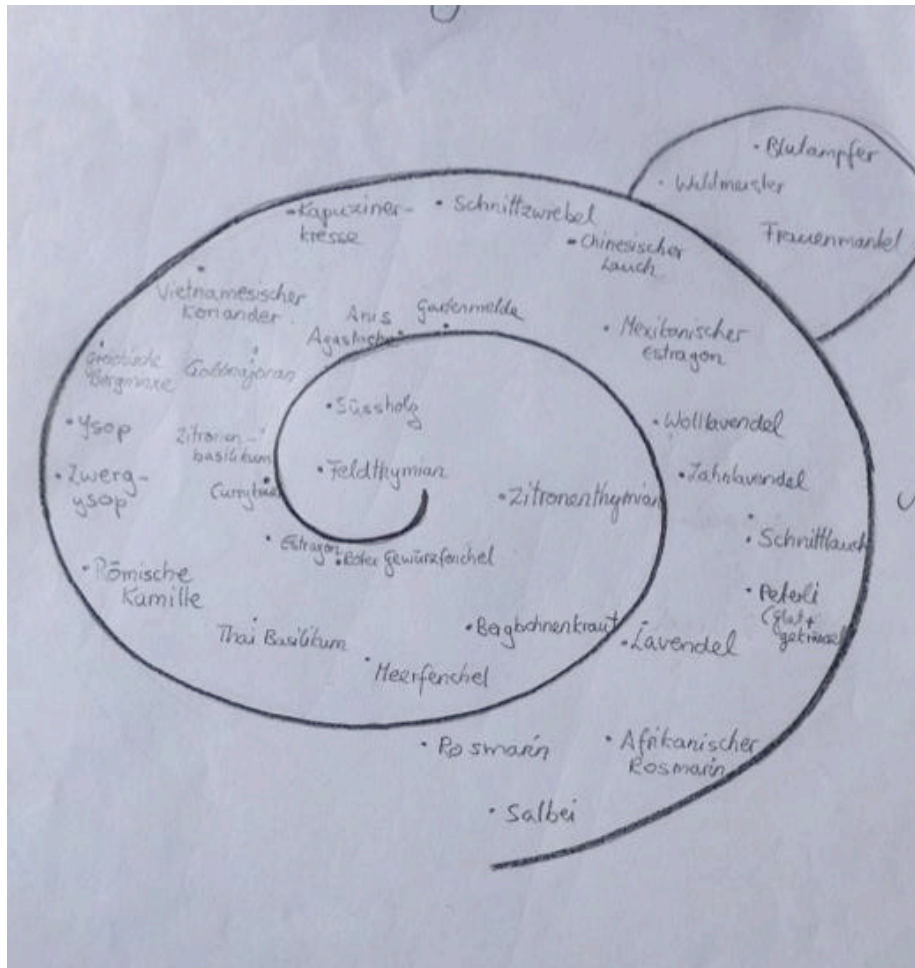 Blutampfer
Waldmeister
Frauenmantel
Kapuziner-
kresse
Schnittzwiebel
Chinesischer
Lauch
Vietnamesischer
Koriander
Anis
Agastache
Gartenmelde
Mexikanischer
Estragon
Griechische
Bergminze
Goldmajoran
Süssholz
Wolllavendel
Ysop
Zitronen-
basilikum
Feldthymian
Zahnlavendel
Zwerg-
ysop
Zitronenthymian
Schnittlauch
Estragon
Roter Gewürzfenchel
Römische
Kamille
Peterli
(glat +
gekraust)
Thai Basilikum
Bergbohnenkraut
Lavendel
Meerfenchel
Rosmarin
Afrikanischer
Rosmarin
Salbei